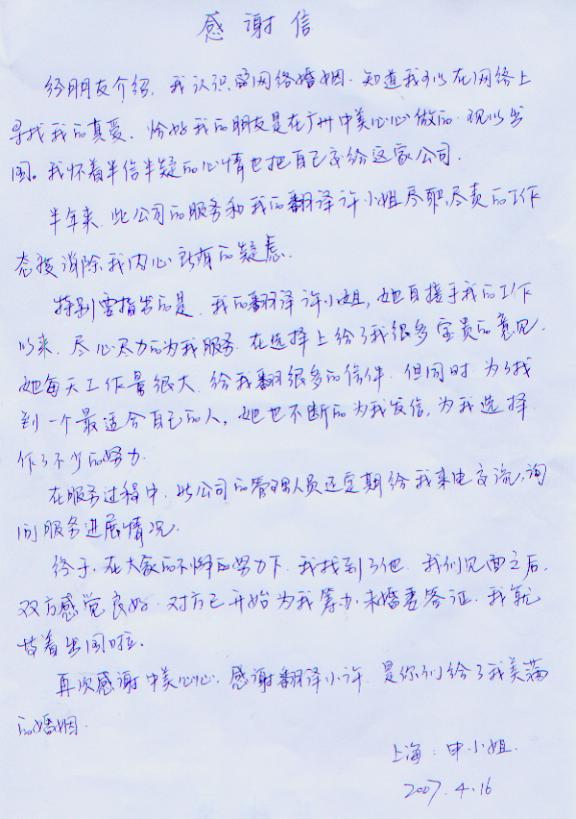 感谢信
经朋友介绍，我认识了网络婚姻，知道我可以在网络上
寻找我的真爱。恰好我的朋友是在广州中美心心做的，现以出
国。我怀着半信半疑的心情也把自己交给这家公司。
半年来，此公司的服务和我的翻译许小姐尽职尽责的工作
态度消除我内心所有的疑虑。
特别要指出的是，我的翻译许小姐，她自接手我的工作
以来，尽心尽力的为我服务，在选择上给了我很多宝贵的意见。
她每天工作量很大，给我翻很多的信件，但同时，为了找
到一个最适合自己的人，她也不断的为我发信，为我选择
作了不少的努力。
在服务过程中，此公司的管理人员还定期给我来电交流，询
问服务进展情况。
终于，在大家的不懈的努力下，我找到了他，我们见面之后，
双方感觉良好，对方已开始为我筹办未婚妻签证，我就
等着出国啦。
再次感谢中美心心，感谢翻译小许，是你们给了我美满
的婚姻。
上海：申小姐
2007.4.16